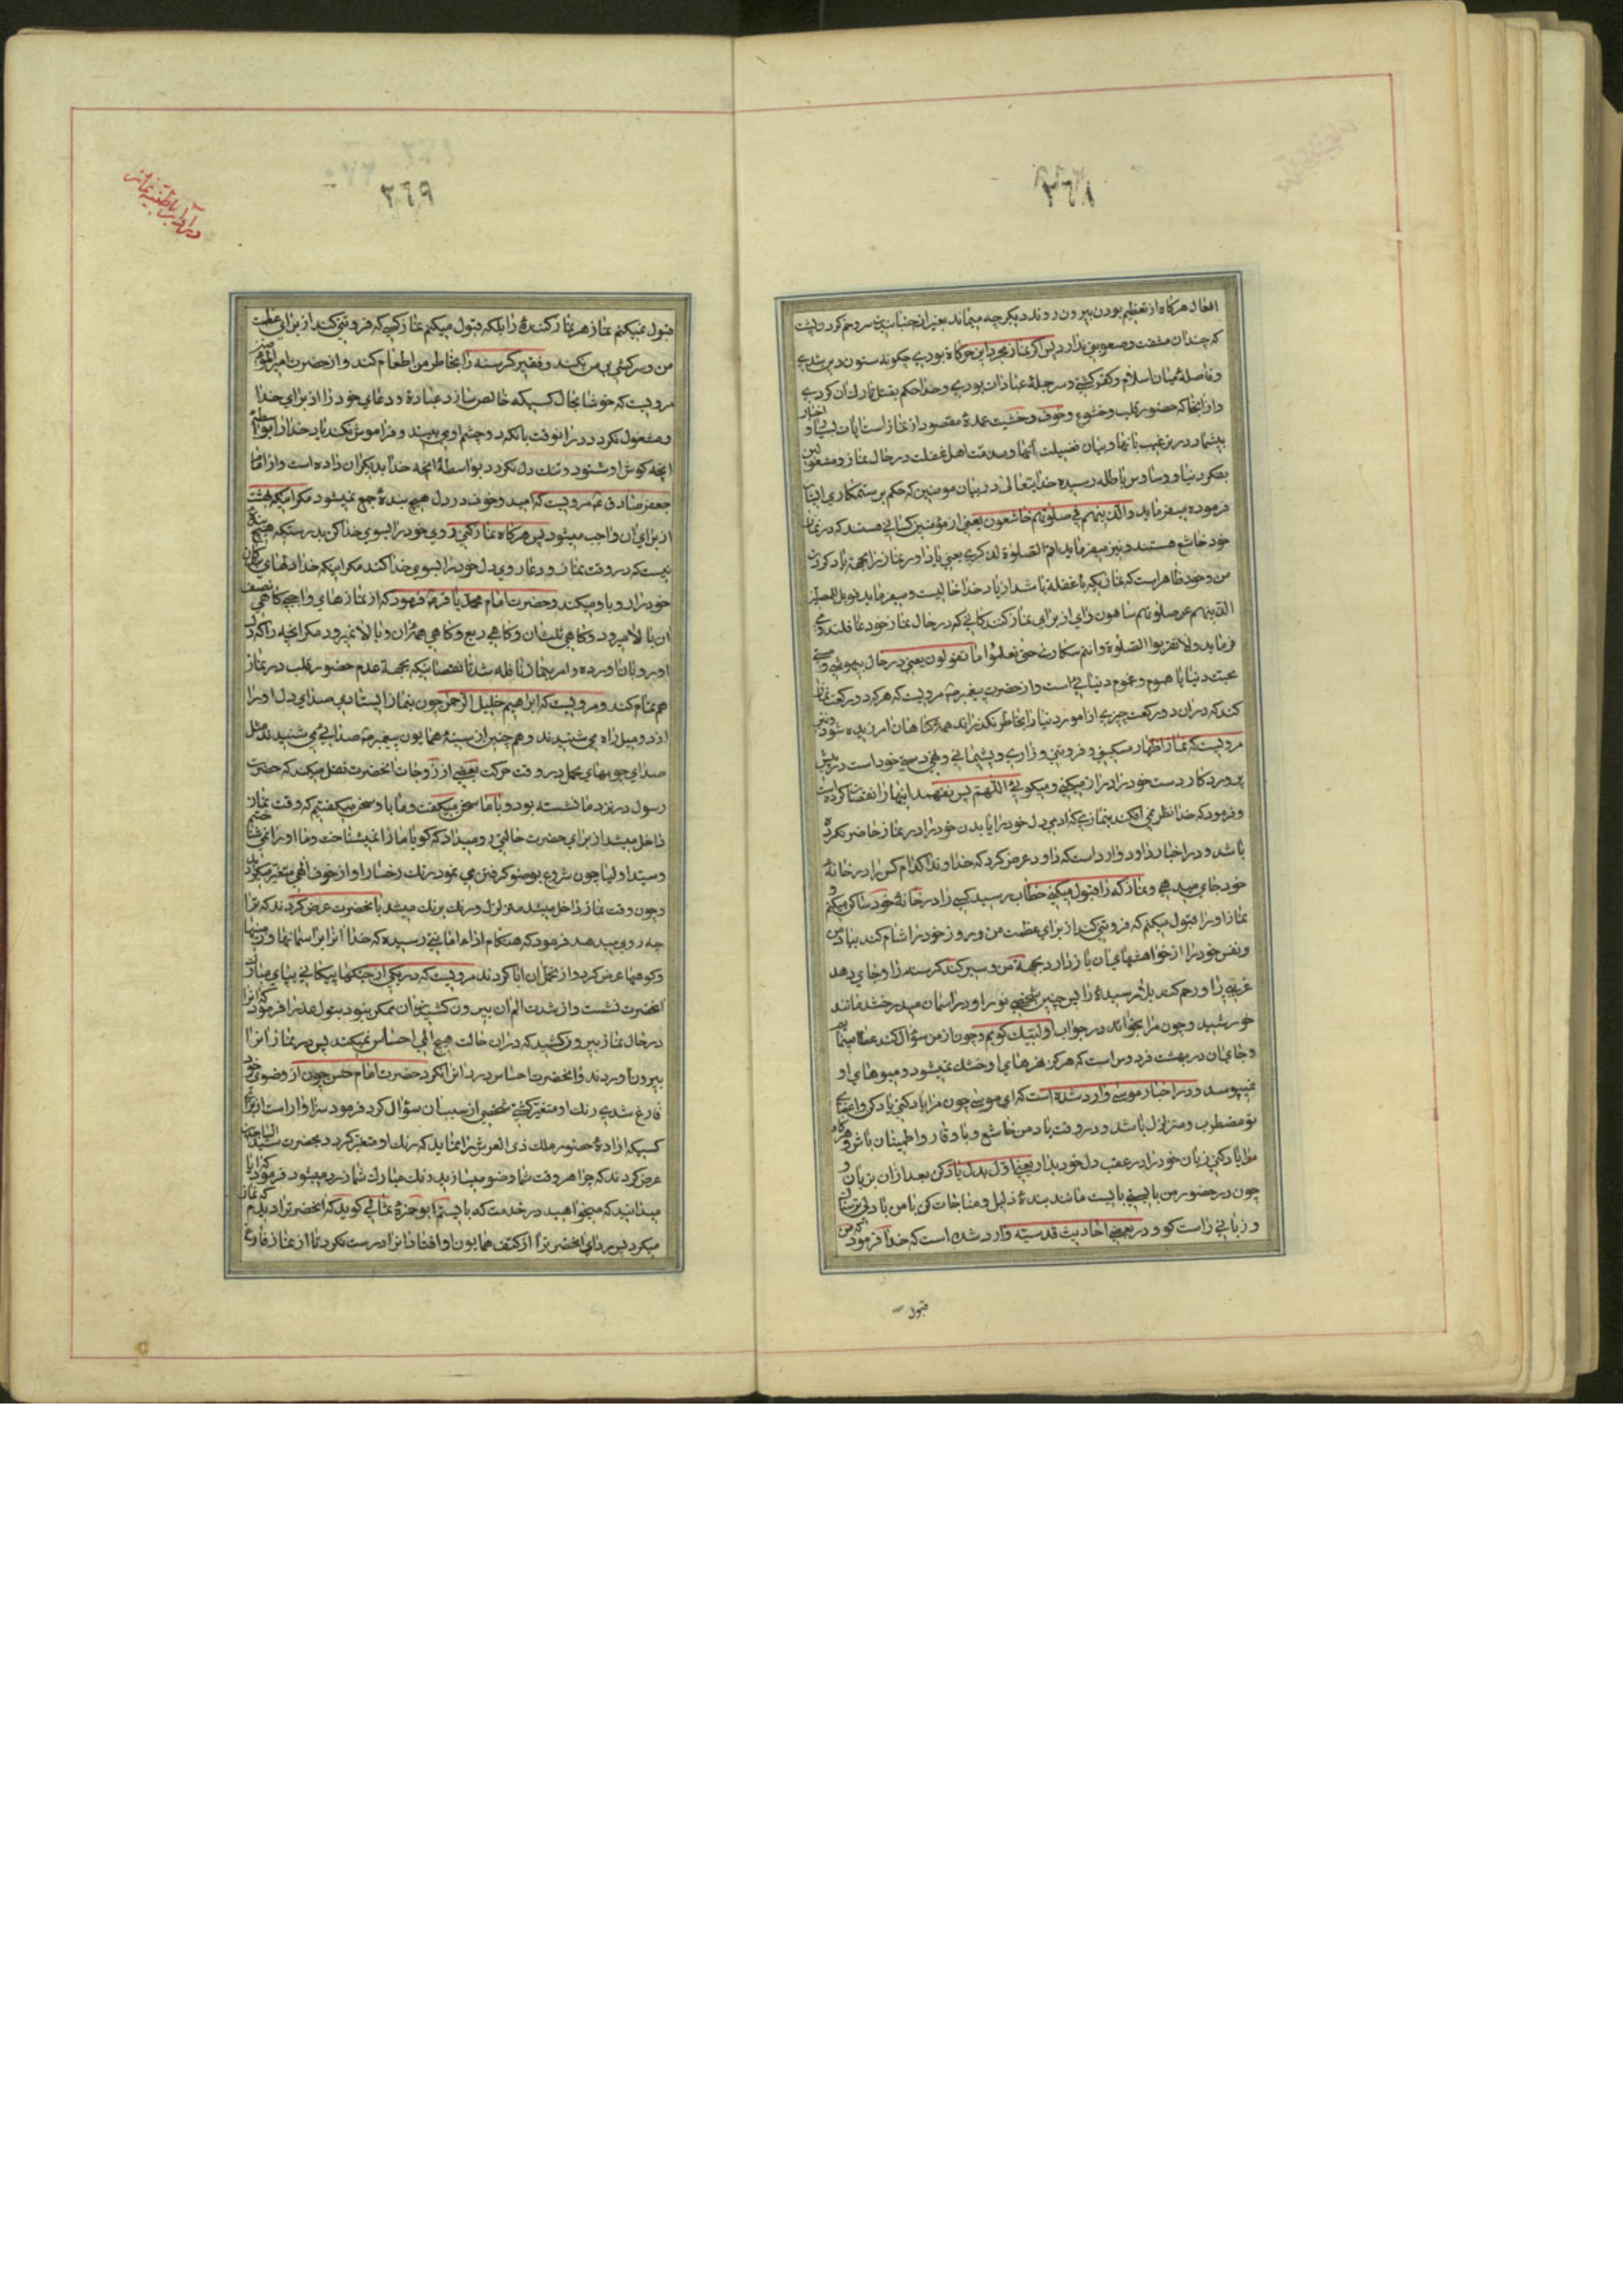 ٢٦٨
افعال هرکاه از تعظیم بودن بیرون روند دیکر چه میماند بغیر از جنبانیدن سر و خم کردن پشت
که چندان مشقت و صعوبتی ندارد پس اگر نماز مجرد این حرکاة بودی چکونه ستون دین شدی
و فاصلهٔ میان اسلام و کفر کشتی و سر جملهٔ عبادات بودی و خدا حکم بقتل تارک ان کردی
و از انجا که حضور قلب و خشوع و خوف و خشیت عمدهٔ مقصود از نماز است ایات بسیار و اخبار
بیشمار در ترغیب بانها و بیان فضیلت آنها و مذمت اهل غفلت در حال نماز و مشغولین
بفکر دنیا و وساوس باطله رسیده خدایتعالی در بیان مومنین که حکم برستکاری ایشان
فرموده میفرماید والذینهم فی صلوتهم خاشعون یعنی از مؤمنین کسانی هستند که در نماز
خود خاشع هستند و نیز میفرماید اقم الصلوة لذکری یعنی پادار نماز را بجهة یاد کردن
من و خود ظاهر است که نمازیکه با غفلة باشد از یاد خدا خالیست و میفرماید فویل للمصلین
الذینهم عن صلوتهم ساهون وای از برای نماز کنندکانی که در حال نماز خود غافلند و می
فرماید ولا تقربوا الصلوة وانتم سکاری حتی تعلموا ما تقولون یعنی در حال بیهوشی و مستی
محبت دنیا یا هموم و غموم دنیائی است و از حضرت پیغمبر مرویست که هرکه دو رکعت نماز
کند که در ان دو رکعت چیزی از امور دنیا را بخاطر نکذراند همهٔ کناهان امرزیده شود و نیز
مرویست که نماز اظهار مسکینی و فروتنی و زاری و پشیمانی و تهی دستی خود است در پیش
پروردکار دست خود را دراز میکنی و میکوئی اللهم پس نفهمد اینها را نقصان کرده است
و فرمود که خدا نظر نمی افکند بنمازی که ادمی دل خود را با بدن خود را در نماز حاضر نکرده
باشد و در اخبار داود وارد است که داود عرض کرد که خداوندا کدام کس را در خانهٔ
خود جای میدهی و نماز که را قبول میکنی خطاب رسید کسی را در خانهٔ خود ساکن میکنم و
نماز او را قبول میکنم که فروتنی کند از برای عظمت من و روز خود را شام کند بیاد من
و نفس خود را از خواهشهای ان بازدارد بجهة من و سیر کند کرسنه را و جای دهد
غریبی را و رحم کند بلا رسیدهٔ را پس چنین شخصی نور او در اسمان میدرخشد مانند
خورشید و چون مرا بخواند در جواب او لبیک کویم و چون از من سؤال کند عطا مینمایم
و جای ان در بهشت فردوس است که هرکز نهرهای او خشک نمیشود و میوهای او
نمیپوسد و در اخبار موسی وارد شده است که ای موسی چون مرا یاد کنی یاد کن و اعضای
تو مضطرب و متزلزل باشد و در وقت یاد من خاشع و با وقار و اطمینان باش و هرکاه
مرا یاد کنی زبان خود را در عقب دل خود بدار یعنی اول بدل یاد کن بعد از ان بزبان و
چون در حضور من بایستی بایست مانند بندهٔ ذلیل و مناجات کن با من با دلی ترسان
و زبانی راست کو و در بعضی احادیث قدسیه وارد شده است که خدا فرمود که من
قبول
٢٦٩
در اداب باطنیه نماز
قبول نمیکنم نماز هر نماز کنندهٔ را بلکه قبول میکنم نماز کسی که فروتنی کند از برای عظمت
من و سرکشی بر من نکند و فقیر کرسنه را بخاطر من اطعام کند و از حضرت امیر المؤمنین
مرویست که خوشا بحال کسیکه خالص سازد عبادة و دعای خود را از برای خدا
و مشغول نکردد در انوقت بانکه دو چشم او می بیند و فراموش نکند یاد خدا را بواسطهٔ
انچه کوش او شنود و تنک دل نکردد بواسطهٔ انچه خدا بدیکران داده است و از امام
جعفر صادق مرویست که امید و خوف در دل هیچ بندهٔ جمع نمیشود مکر اینکه بهشت
از برای ان واجب میشود پس هرکاه نماز کنی روی خود را بسوی خدا کن بدرستیکه هیچ بندهٔ
نیست که در وقت نماز و دعا روی دل خود را بسوی خدا کند مکر اینکه خدا دلهای بندکان
خود را رو باو میکند و حضرت امام محمد باقر فرمود که از نمازهای واجبی کاهی نصف
ان بالا میرود و کاهی ثلث ان و کاهی ربع و کاهی همهٔ ان و بالا نمیرود مکر انچه را که دل
او رو بان اورده و امر بنماز نافله شد تا نقصانیکه بجهة عدم حضور قلب در نماز
هم تمام کند و مرویست که ابراهیم خلیل الرحمن چون بنماز ایستادی صدای دل او را
از دو میل راه می شنیدند و همچنین از سینهٔ همایون پیغمبر صدائی می شنیدند مثل
صدای جوشهای محمل در وقت حرکت بعضی از زوجات انحضرت نقل میکند که حضرت
رسول در نزد ما نشسته بود و با ما سخن میکفت و ما با او سخن میکفتیم که وقت نماز
داخل میشد از برای حضرت حالتی رو میداد که کویا ما را نمیشناخت و ما او را نمی شناختیم
و سید اولیا چون شروع بوضو کرفتن می نمود رنک رخسار او از خوف الهی متغیر میکردید
و چون وقت نماز داخل میشد متزلزل و رنک برنک میشد بانحضرت عرض کردند که ترا
چه روی میدهد فرمود که هنکام اداء امانتی رسیده که خدا انرا بر اسمانها و زمینها
و کوهها عرض کرد و از تحمل ان ابا کردند مرویست که در یکی از جنکها پیکانی بپای مبارک
انحضرت نشست و از شدت الم ان بیرون کشیدن ان ممکن نبود بتول عذرا فرمود که انرا
در حال نماز بیرون کشید که در ان حالت هیچ المی احساس نمیکند پس در نماز انرا
بیرون اوردند و انحضرت احساس درد انرا نکرد حضرت امام حسن چون از وضوی خود
فارغ شدی رنک او متغیر کشتی شخصی از سبب ان سؤال کرد فرمود سزاوار است از برای
کسیکه ارادهٔ حضور ملک ذی العرش را نماید که رنک او متغیر کردد بحضرت سید الساجدین
عرض کردند که چرا هر وقت شما وضو میسازید رنک مبارک شما زرد میشود فرمود که ایا
میدانید که میخواهید در خدمت که بایستم ابو حمزهٔ ثمالی کوید که انحضرت را دیدم که نماز
میکرد پس ردای انحضرت را از کتف همایون او افتاد انرا درست نکرد تا از نماز فارغ